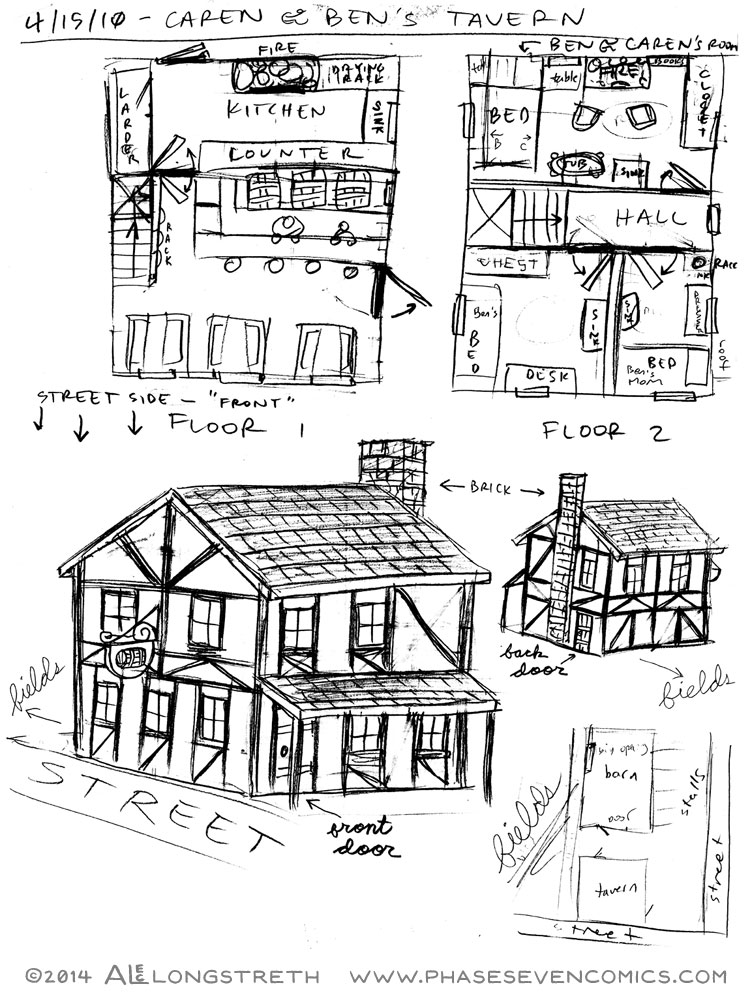 4/15/10 - CAREN & BEN'S TAVERN
FIRE
DRYING RACK
LARDER
KITCHEN
SINK
COUNTER
RACK
STREET SIDE - "FRONT"
FLOOR 1
BEN & CAREN'S ROOM
table
FIRE
BOOKS
CLOSET
BED
B C
TUB
SINK
HALL
CHEST
RACK
Ben's
BED
SINK
SINK
DESK
BED
Ben's
Mom
roof
FLOOR 2
BRICK
back
door
fields
fields
STREET
front
door
fields
barn
Door
stalls
tavern
street
street
©2014 ALEC LONGSTRETH WWW.PHASESEVENCOMICS.COM